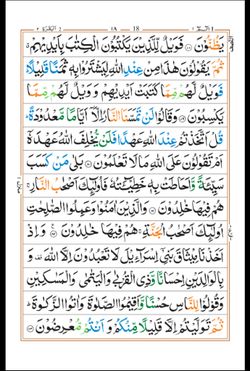 البقرة ٢ ١٩ 18 الٓمّ ١
يَظُنُّوْنَ ۝ فَوَيْلٌ لِّلَّذِيْنَ يَكْتُبُوْنَ الْكِتٰبَ بِاَيْدِيْهِمْ
ثُمَّ يَقُوْلُوْنَ هٰذَا مِنْ عِنْدِ اللّٰهِ لِيَشْتَرُوْا بِهٖ ثَمَنًا قَلِيْلًا
فَوَيْلٌ لَّهُمْ مِّمَّا كَتَبَتْ اَيْدِيْهِمْ وَوَيْلٌ لَّهُمْ مِّمَّا
يَكْسِبُوْنَ ۝ وَقَالُوْا لَنْ تَمَسَّنَا النَّارُ اِلَّآ اَيَّامًا مَّعْدُوْدَةً
قُلْ اَتَّخَذْتُمْ عِنْدَ اللّٰهِ عَهْدًا فَلَنْ يُّخْلِفَ اللّٰهُ عَهْدَهٗٓ
اَمْ تَقُوْلُوْنَ عَلَى اللّٰهِ مَا لَا تَعْلَمُوْنَ ۝ بَلٰى مَنْ كَسَبَ
سَيِّئَةً وَّاَحَاطَتْ بِهٖ خَطِيْٓـَٔتُهٗ فَاُولٰٓئِكَ اَصْحٰبُ النَّارِ
هُمْ فِيْهَا خٰلِدُوْنَ ۝ وَالَّذِيْنَ اٰمَنُوْا وَعَمِلُوا الصّٰلِحٰتِ
اُولٰٓئِكَ اَصْحٰبُ الْجَنَّةِ هُمْ فِيْهَا خٰلِدُوْنَ ۝ وَاِذْ
اَخَذْنَا مِيْثَاقَ بَنِيْٓ اِسْرَآءِيْلَ لَا تَعْبُدُوْنَ اِلَّا اللّٰهَ
وَبِالْوَالِدَيْنِ اِحْسَانًا وَّذِى الْقُرْبٰى وَالْيَتٰمٰى وَالْمَسٰكِيْنِ
وَقُوْلُوْا لِلنَّاسِ حُسْنًا وَّاَقِيْمُوا الصَّلٰوةَ وَاٰتُوا الزَّكٰوةَ
ثُمَّ تَوَلَّيْتُمْ اِلَّا قَلِيْلًا مِّنْكُمْ وَاَنْتُمْ مُّعْرِضُوْنَ ۝